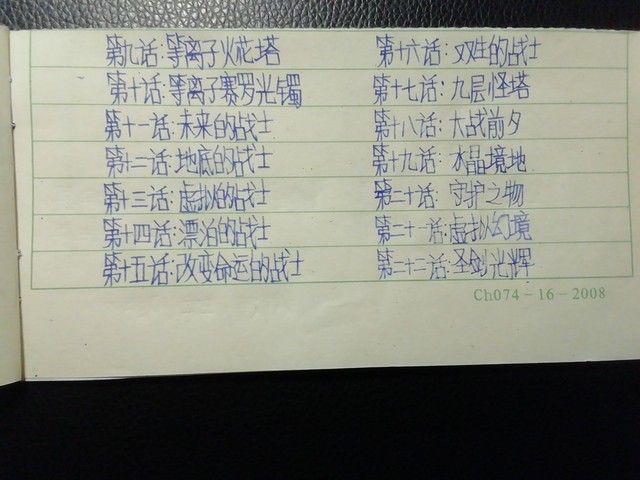 第九话:等离子火花塔
第十话:等离子赛罗光镯
第十一话:未来的战士
第十二话:地底的战士
第十三话:虚拟的战士
第十四话:漂泊的战士
第十五话:改变命运的战士
第十六话:双生的战士
第十七话:九层怪塔
第十八话:大战前夕
第十九话:水晶境地
第二十话:守护之物
第二十一话:虚拟幻境
第二十二话:圣剑光辉
Ch074-16-2008